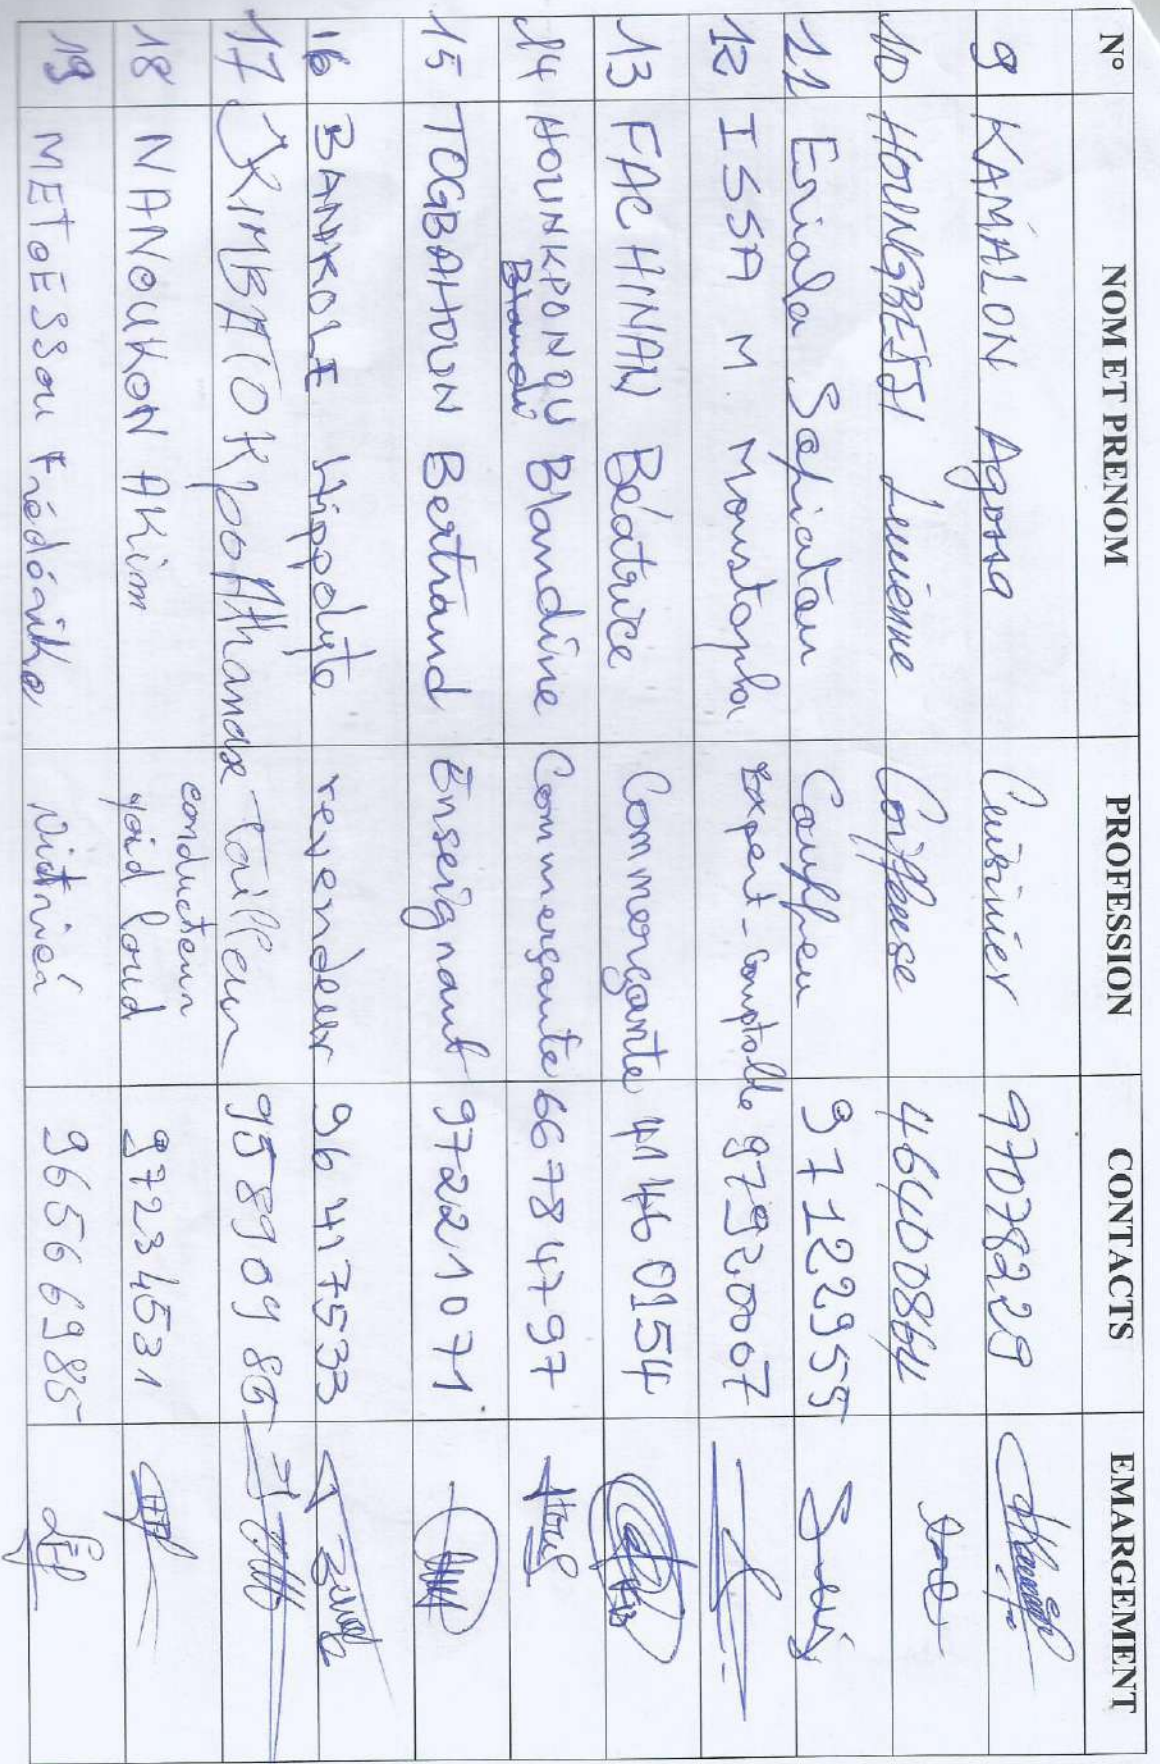 N° NOM ET PRENOM PROFESSION CONTACTS EMARGEMENT
9 KAMALON Agossa Cuisinier 97078229
10 HOUNGBEDJI Lucienne Coiffeuse 46400864
11 Eriola Safiatou Coiffeu 97122955
12 ISSA M. Moustapha Expert-Comptable 97920007
13 FACHINAN Béatrice Commerçante 41460154
14 HOUNKPONOU Blandine Commerçante 66784797
15 TOGBAHOUN Bertrand Enseignant 97221071
16 BANKOLE Hippolyte revendeur 96417533
17 KIMBATOKpo Athanase Tailleur 95890986
18 NANOUKON AKim conducteur poid lourd 97234531
19 METOESSOU Frédérike 96566985